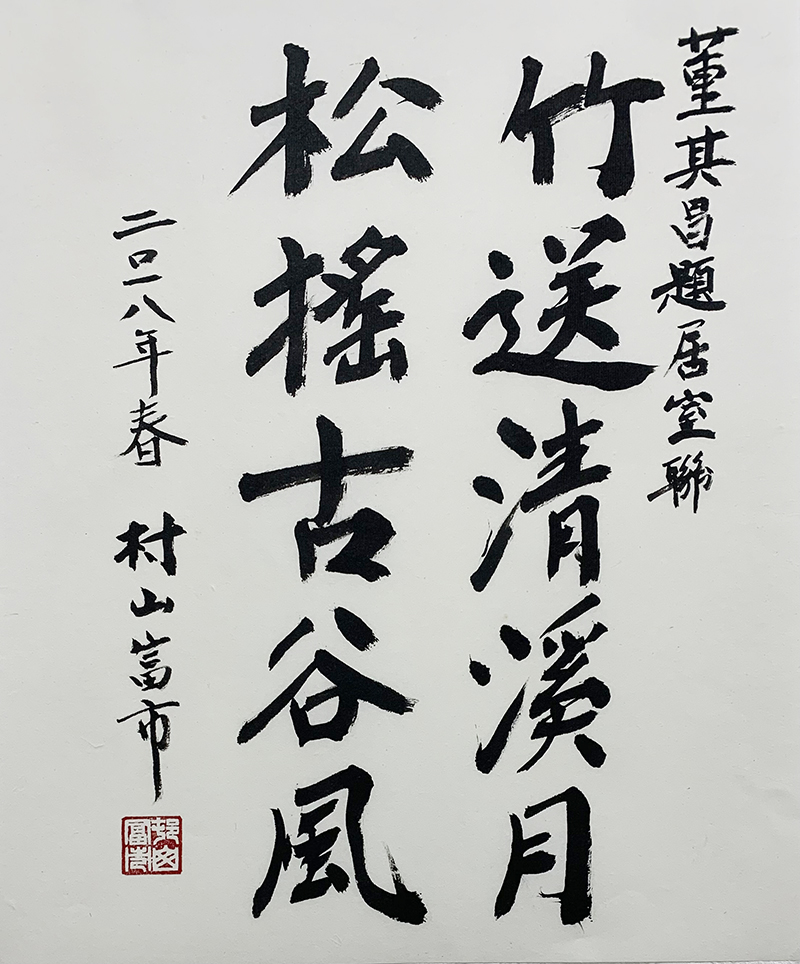 董其昌題居室聯
竹送清溪月
松搖古谷風
二〇一八年春 村山富市
村山富市